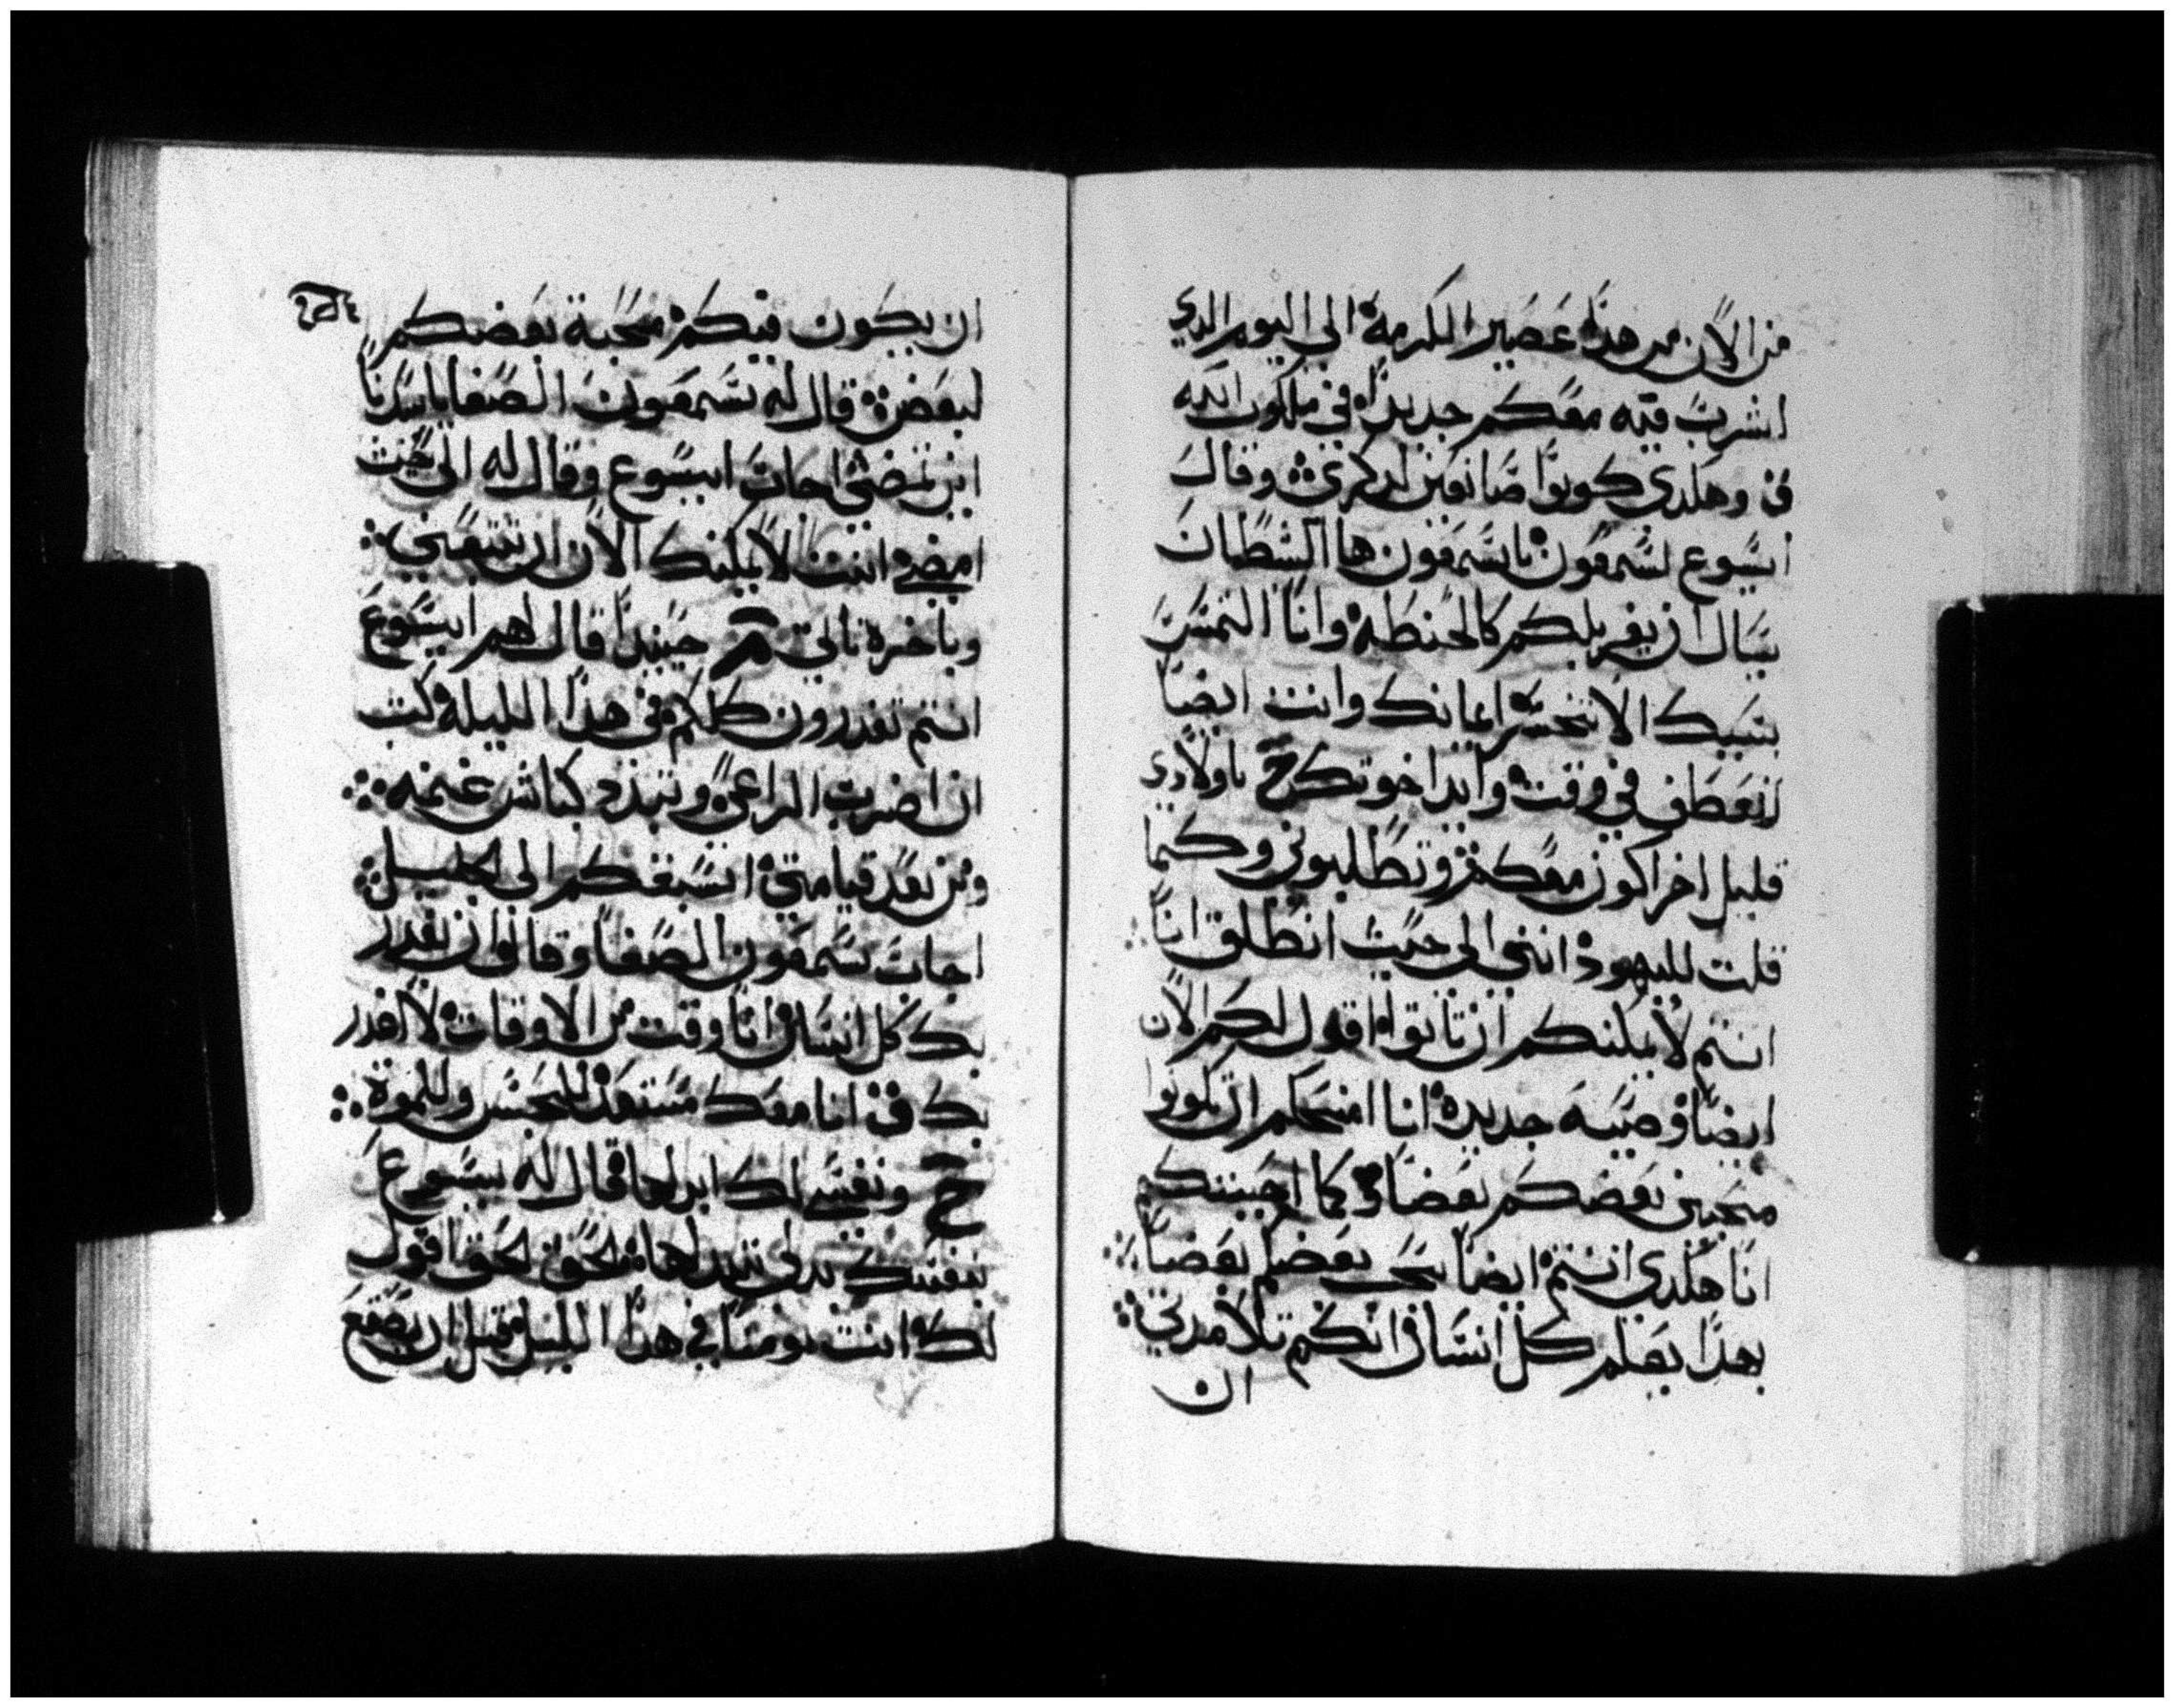 من الان من هذه عصير الكرمة الى اليوم الدي
اشرب فيه معكم جديدا في ملكوت الله
ق وهكدى كونوا صانعين لدكري وقال
ايسوع لشمعون يا سمعون ها الشطان
يسال ان يغربلكم كالحنطه وانا التمست
بسببك الا تخسر ايمانك وانت ايضا
انعطف في وقت وايد اخوتك ح يا ولادي
قليل اخر اكون معكم وتطلبوني وكما
قلت لليهود انني الى حيث انطلق انا
انتم لا يمكنكم ان تاتوا اقول لكم الان
ايضا وصيه جديده انا امنحكم ان تكونوا
محبين بعضكم بعضا وكما احببتكم
انا هكدى انتم ايضا يحب بعضكم بعضا
بهدا يعلم كل انسان انكم تلامدتي
ان
ان يكون فيكم محبة بعضكم
لبعض قال له سمعون الصفا يا سيدنا
اين تمضي اجاب ايسوع وقال له الى حيث
امضي انت لا يمكنك الان ان تتبعني
وباخرة تاتي حينيدا قال لهم ايسوع
انتم تغدرون كلكم في هدا الليله كتب
ان اضرب الراعي وتبدد كباش غنمه
ومن بعد قيامتي اسبقكم الى الجليل
اجاب سمعون الصفا وقال وان يغدر
بك كل انسان انا وقت من الاوقات لا اغدر
بك ق انا معك مستعد للحبس وللموة
ح ونفسي لك ابدلها قال له يسوع
نفسك بدلي تبدلها الحق الحق اقول
لك انت يومنا في هدا الليل قبل ان يصقع